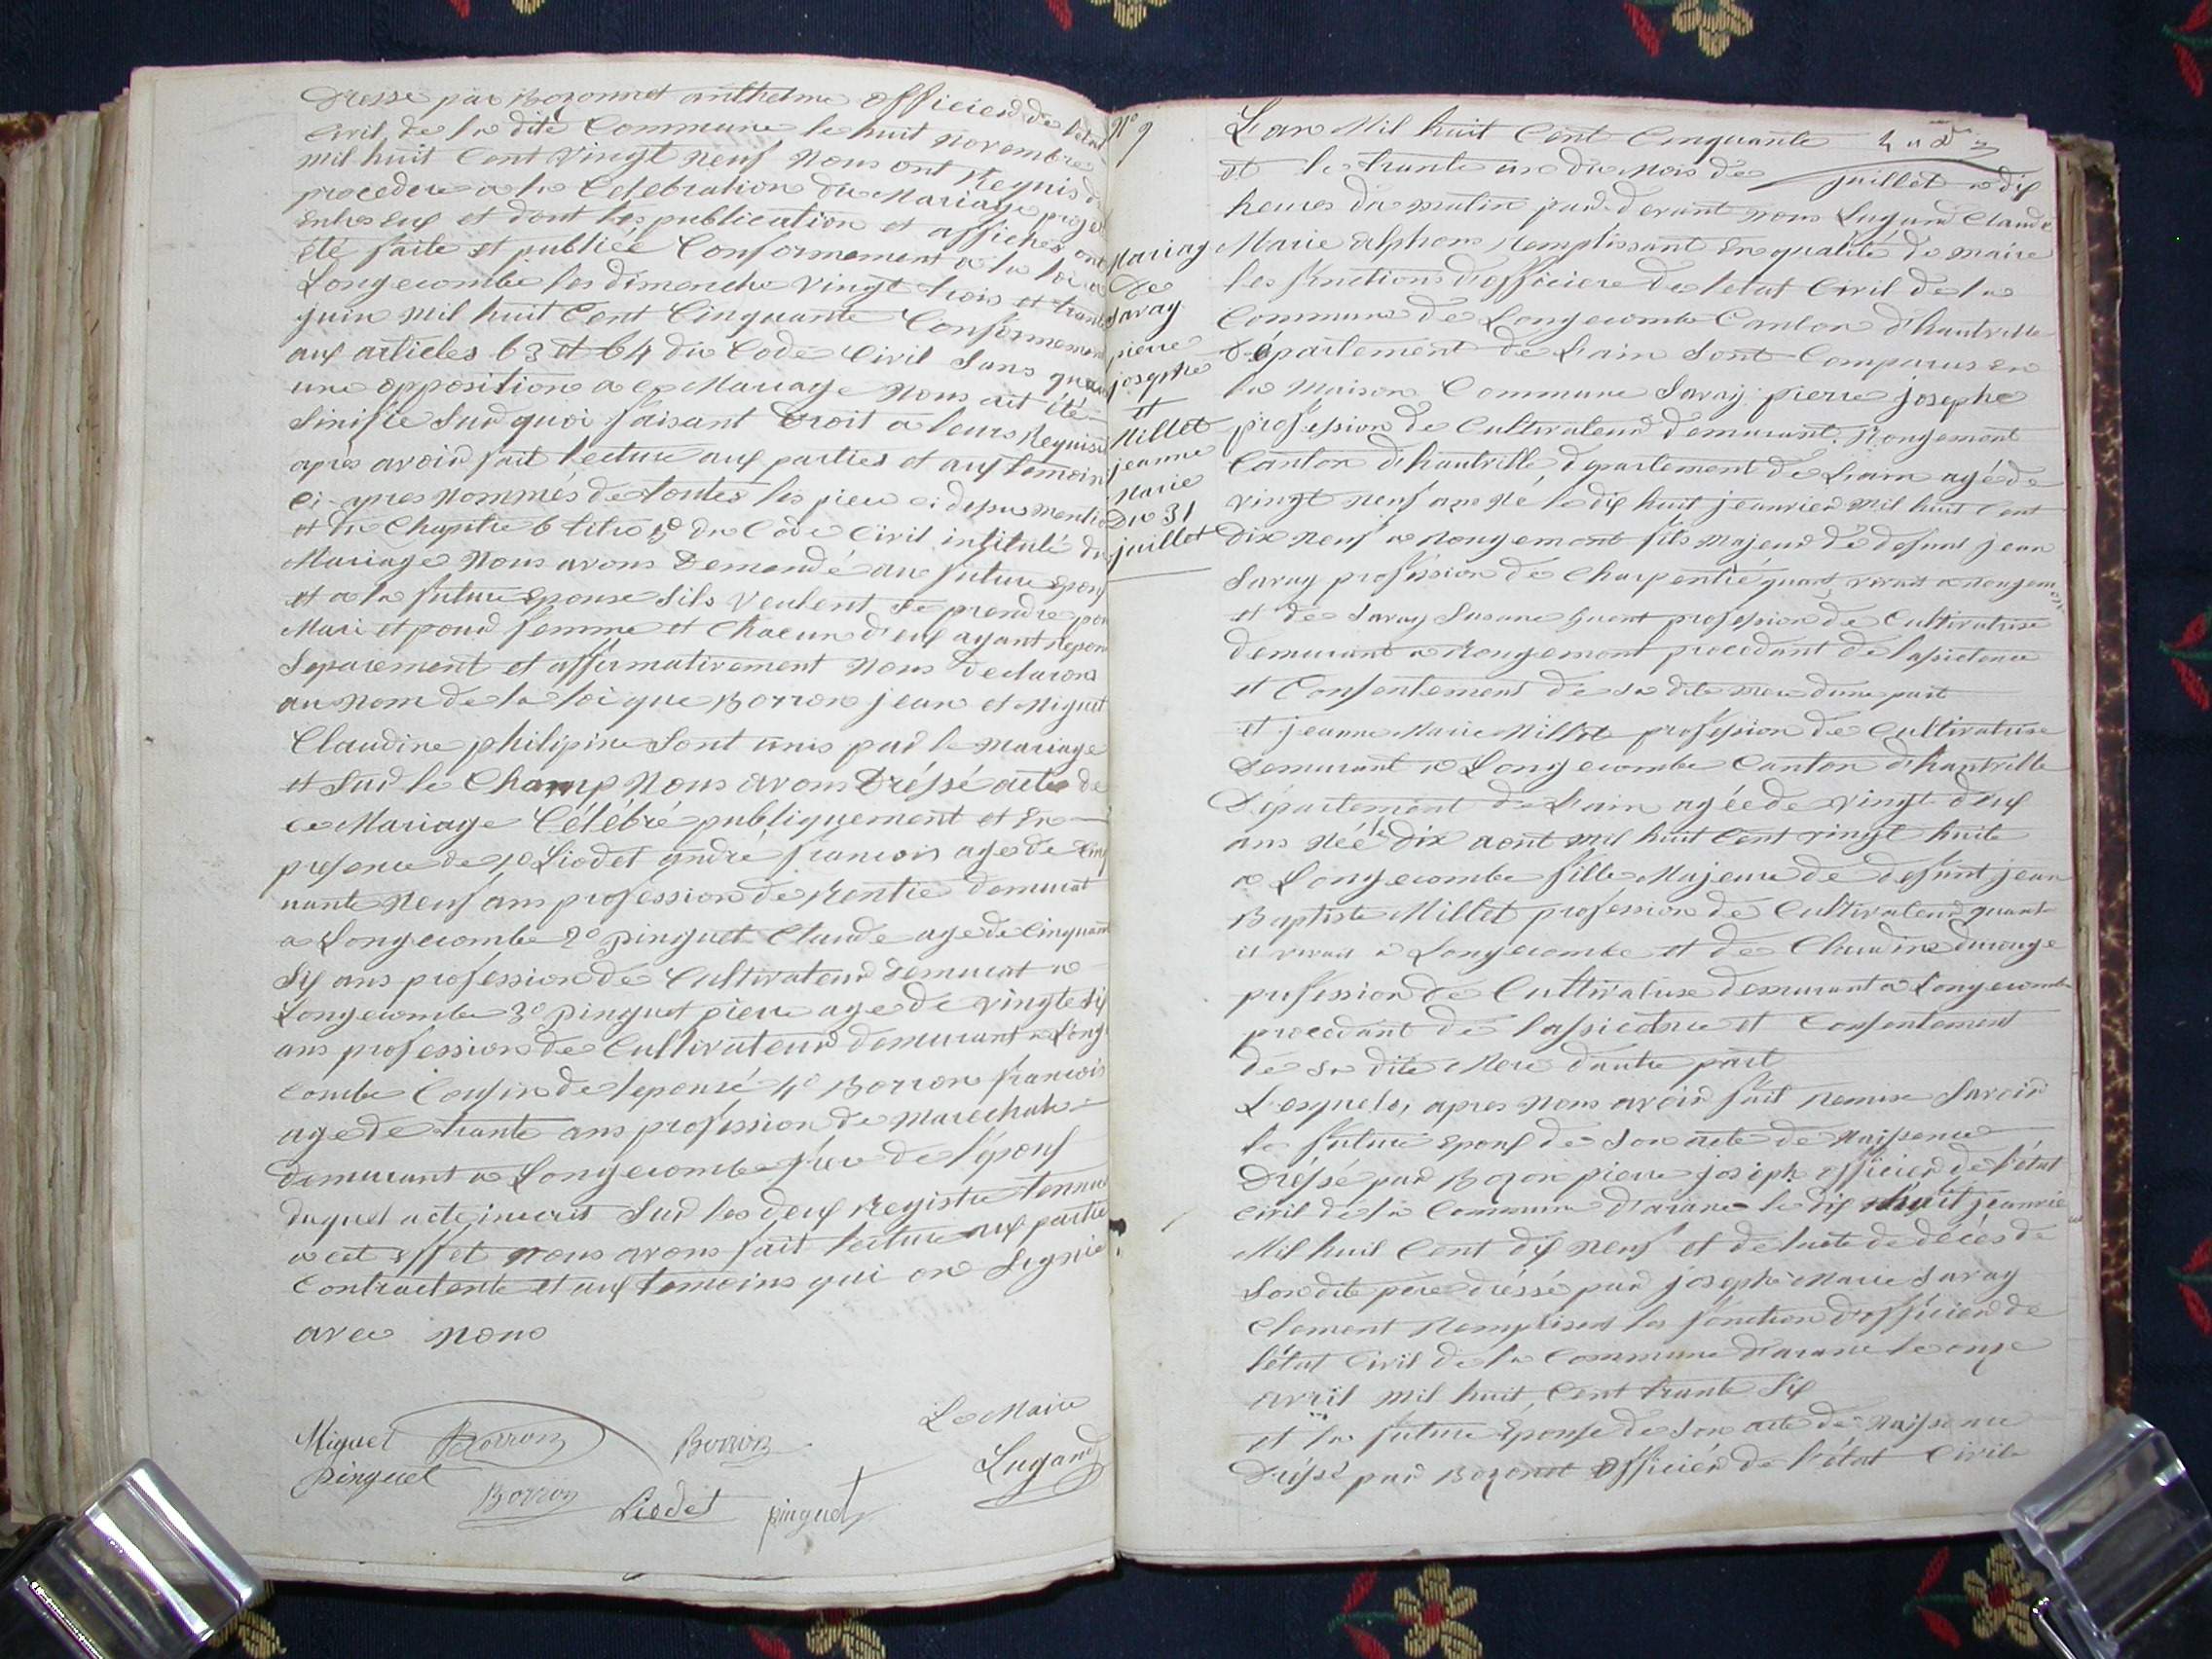 Dressé par Bozonnet anthelme officier de l'état
Civil de la dite Commune le huit novembre
mil huit Cent vingt neuf nous ont requis de
procédere a la Célébration du Mariage projeté
entres eux et dont les publication et affiches ont
été faite et publiée Conformement a la loi a
Longecombe les dimenche vingt trois et trante
juin mil huit Cent Cinquante Conformement
aux articles 63 et 64 du Code Civil Sans
une opposition a ce Mariage nous ait été
Sinifié Sur quoi faisant droit a leurs Requisi
après avoir fait lecture aux parties et aux temoins
Ci-apres nommés de toutes les piece ci dessus
et du Chapitre 6 titre du Code Civil intitulé du
Mariage nous avons Demendé au future Epoux
et a la future Epouse Sils Veulent se prendre pour
Mari et pour femme et Chacun d'eux ayant repon
Separement et affirmativement nous declarons
au nom de la loi que Borron jean et Miguet
Claudine philipine Sont unis par le mariage
et Sur le Champ nous avons Dréssé acte de
ce Mariage Célébré publiquement et En
presence de 1o Liodet andré francois age de Cinq
uante neuf ans profession de Rentié demurat
a Longecombe 2o pinguet Claude age de Cinquant
Six ans profession de Cultivateur demurat a
Longecombe 3o pinguet pierre age de vingte six
ans profession de Cultivateur demurant a Longe
combe Cousin de lepouse 4o Borron francois
age de trante ans profession de Marechal
demurant a Longecombe frere de l'époux
duquel acte inscrit Sur les deux Registre tennu
a cet effet nous avons fait lecture aux partie
Contractente et aux temoins qui on Signié
avec nous
Miguet Borron Borron Le Maire
Pinguet Borron Liodet pinguet Lugand
No 9
Mariag
De
Savay
pierre
josephe
et
Millet
jeanne
Marie
Du 31
juillet
L'an Mil huit Cent Cinquante
et le trante un du Mois de juillet a dix
heures du matin par devant nous Lugand Claude
Marie alphons Remplissant En qualité de maire
les fonctions d'officiere de l'etat Civil de la
Commune de Longecombe Canton d'hautville
Département de L'ain Sont Comparus en
la Maison Commune Savay pierre josephe
profession de Cultivateur demurant Rongemont
Canton d'hautville, departement de L'ain agé de
vingt neuf ans né le dix huit jeanvier mil huit Cent
dix neuf a Rongemont fils majeur de defunt jean
Savay profession de Charpentié quant vivait a Rongemont
et de Savay Susane profession de Cultivatrise
demurant a Rongemont procedant de lasictence
et Consentement de sa dite mere d'une part
et jeanne Marie Millet profession de Cultivatrise
Demurant a Longecombe Canton d'hautville
Département de L'ain agée de vingt deux
ans née le Dix aout mil huit Cent vingt huite
a Longecombe fille Majeure de defunt jean
Baptiste Millet profession de Cultivateur quant
il vivait a Longecombe et de Claudine
profession de Cultivatrise demurant a Longecombe
procedant de lassictence et Consentement
de sa dite Mere d'autre part
Lesquels, apres nous avoir fait Remise Savoir
le future Epoux de Son acte de Naissence
Dréssé par Bozon pierre joseph officier de l'état
Civil de la Commune d'arane le dix huit jeanvie
Mil huit Cent dix neuf et de lacte de décès de
Son dite père dréssé par josephe Marie Savay
Clement Remplisent les fonction d'officier de
l'état Civil de la Commune d'arane le onze
avril mil huit Cent trante Six
et la future Epouse de Son acte de Naissence
Dréssé par Bozonet officier de l'état Civile